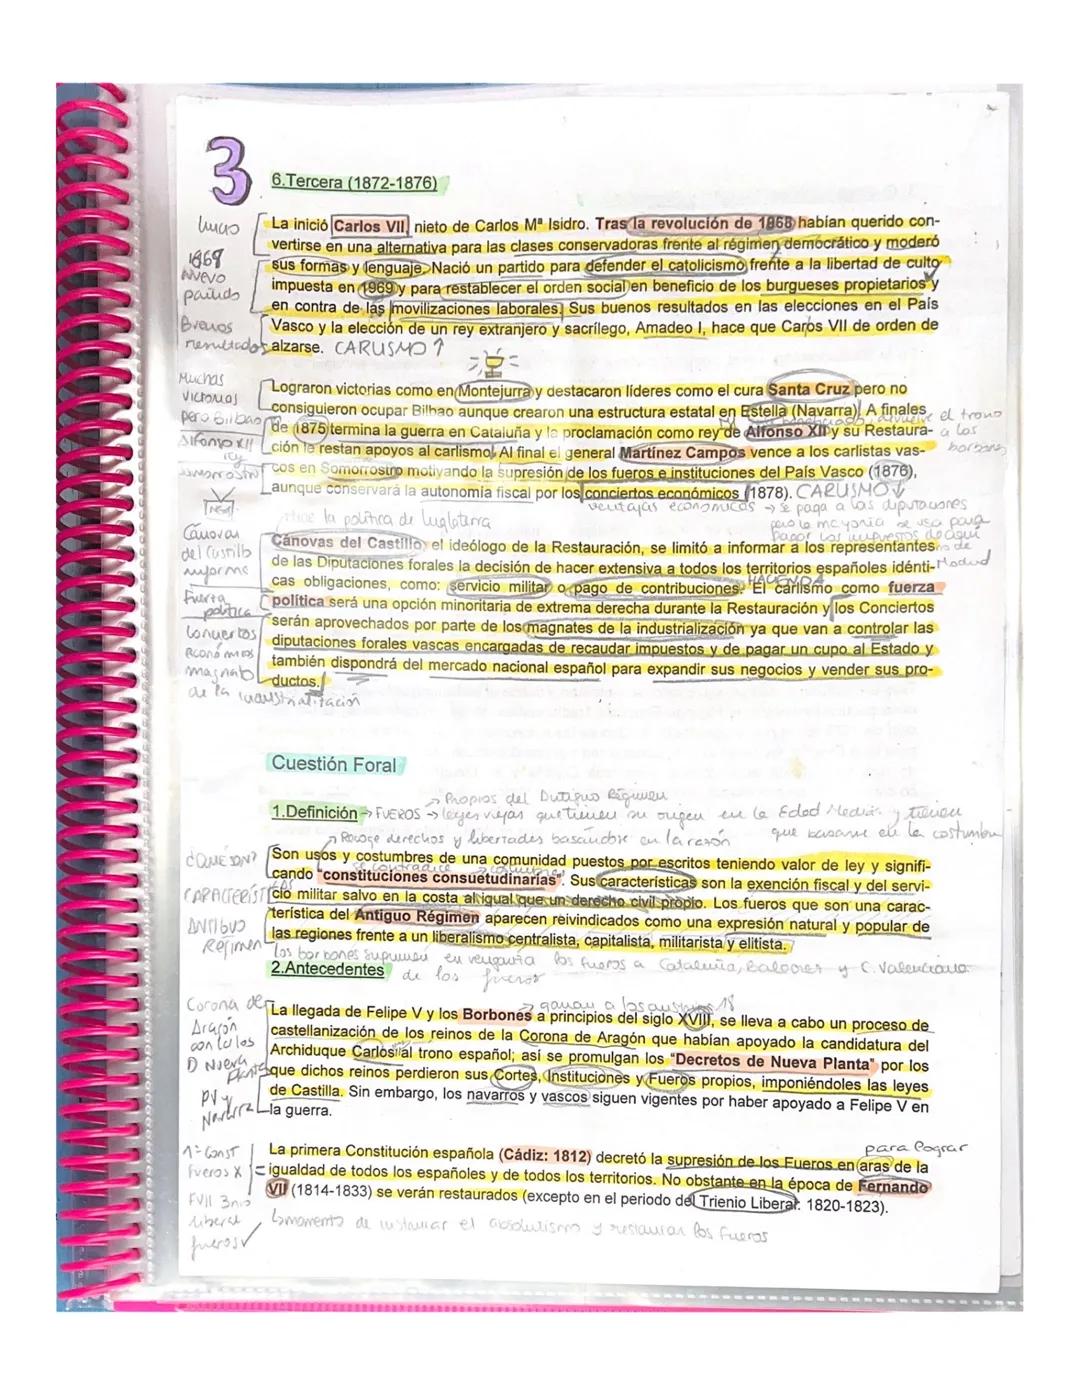 3
6.Tercera (1872-1876)
Inicio
La inició Carlos VII, nieto de Carlos Mª Isidro. Tras la revolución de 1868 habían querido con-
vertirse en una alternativa para las clases conservadoras frente al régimen democrático y moderó
1969
Nuevo
partido
sus formas y lenguaje. Nació un partido para defender el catolicismo frente a la libertad de culto
impuesta en 1969 y para restablecer el orden social en beneficio de los burgueses propietarios y
en contra de las movilizaciones laborales. Sus buenos resultados en las elecciones en el País
Buenos
resultados
Vasco y la elección de un rey extranjero y sacrílego, Amadeo I, hace que Carlos VII de orden de
alzarse. CARLISMO ↑
Muchas
victorias
pero Bilbao
Lograron victorias como en Montejurra y destacaron líderes como el cura Santa Cruz pero no
consiguieron ocupar Bilbao aunque crearon una estructura estatal en Estella (Navarra). A finales
el trono
a los
borbones
Alfonso XII
rey
de 1875 termina la guerra en Cataluña y la proclamación como rey de Alfonso XII y su Restaura-
ción le restan apoyos al carlismo. Al final el general Martínez Campos vence a los carlistas vas-
Somorrostro
cos en Somorrostro motivando la supresión de los fueros e instituciones del País Vasco (1876),
aunque conservará la autonomía fiscal por los conciertos económicos (1878). CARLISMO ↓
ventajas económicas → se paga a las diputaciones
pero la mayoría se usa para
pagar los impuestos de aquí
la política de Inglaterra
Cánovas
del Castillo
informe
Cánovas del Castillo, el ideólogo de la Restauración, se limitó a informar a los representantes
de las Diputaciones forales la decisión de hacer extensiva a todos los territorios españoles idénti-
Madrid
cas obligaciones, como: servicio militar o pago de contribuciones. El carlismo como fuerza
HACIENDA
Fuerza
política
política será una opción minoritaria de extrema derecha durante la Restauración y los Conciertos
Conciertos
económicos
magnates
de la industrialización
serán aprovechados por parte de los magnates de la industrialización ya que van a controlar las
diputaciones forales vascas encargadas de recaudar impuestos y de pagar un cupo al Estado y
también dispondrá del mercado nacional español para expandir sus negocios y vender sus pro-
ductos.
Cuestión Foral
→ Propios del Antiguo Régimen
1.Definición → FUEROS → leyes viejas que tienen su origen en la Edad Media y tienen
que basarse en la costumbre
→ Recoge derechos y libertades basándose en la razón
¿QUÉ SON?
Son usos y costumbres de una comunidad puestos por escritos teniendo valor de ley y signifi-
se contradice → costumbre
cando "constituciones consuetudinarias". Sus características son la exención fiscal y del servi-
CARACTERÍSTICAS
cio militar salvo en la costa al igual que un derecho civil propio. Los fueros que son una carac-
ANTIGUO
Régimen
terística del Antiguo Régimen aparecen reivindicados como una expresión natural y popular de
las regiones frente a un liberalismo centralista, capitalista, militarista y elitista.
los borbones suprimen en venganza los fueros a Cataluña, Baleares y C. Valenciana
2.Antecedentes de los fueros
→ ganan a los austrias
Corona de
Aragón
con los
D Nueva
Planta
La llegada de Felipe V y los Borbones a principios del siglo XVIII, se lleva a cabo un proceso de
castellanización de los reinos de la Corona de Aragón que habían apoyado la candidatura del
Archiduque Carlos al trono español; así se promulgan los "Decretos de Nueva Planta" por los
que dichos reinos perdieron sus Cortes, Instituciones y Fueros propios, imponiéndoles las leyes
PV y
Navarra
de Castilla. Sin embargo, los navarros y vascos siguen vigentes por haber apoyado a Felipe V en
la guerra.
para lograr
1ª Const
Fueros X
La primera Constitución española (Cádiz: 1812) decretó la supresión de los Fueros en aras de la
igualdad de todos los españoles y de todos los territorios. No obstante en la época de Fernando
FVII 3nio
liberal
fueros ✓
VII (1814-1833) se verán restaurados (excepto en el periodo del Trienio Liberal: 1820-1823).
↳ momento de instaurar el absolutismo y restaurar los Fueros